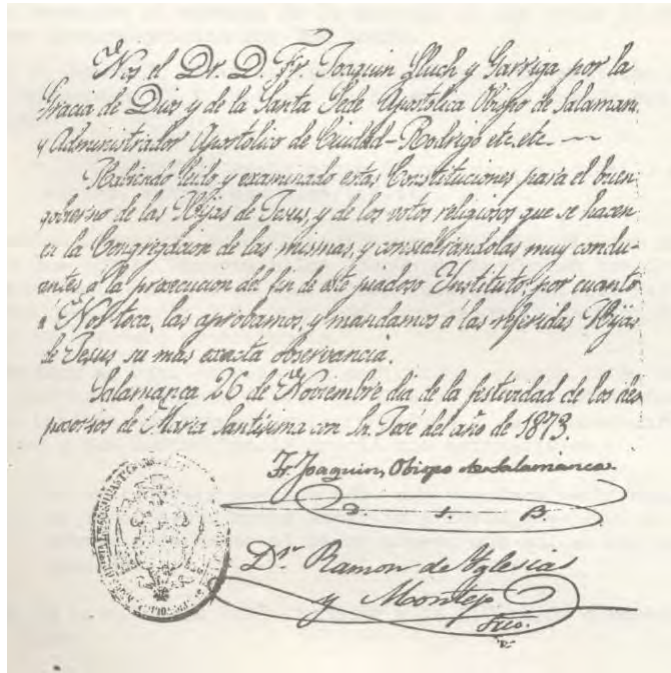 Nos el Dr. D. Fr. Joaquin Lluch y Garriga por la
Gracia de Dios y de la Santa Sede Apostolica Obispo de Salaman.
y Administrador Apostolico de Ciudad-Rodrigo etc. etc. —
Habiendo leido y examinado estas Constituciones para el buen
gobierno de las Hijas de Jesus, y de los votos religiosos que se hacen
en la Congregacion de las mismas, y considerandolas muy condu-
centes á la prosecucion del fin de este piadoso Instituto, por cuanto
á Nos toca, las aprobamos, y mandamos á las referidas Hijas
de Jesus su mas exacta observancia.
Salamanca 26 de Noviembre dia de la festividad de los des
posorios de Maria Santisima con Sn. José del año de 1873.
Fr. Joaquin, Obispo de Salamanca.
Dr. Ramon de Yglesias
y Montejo
Srio.